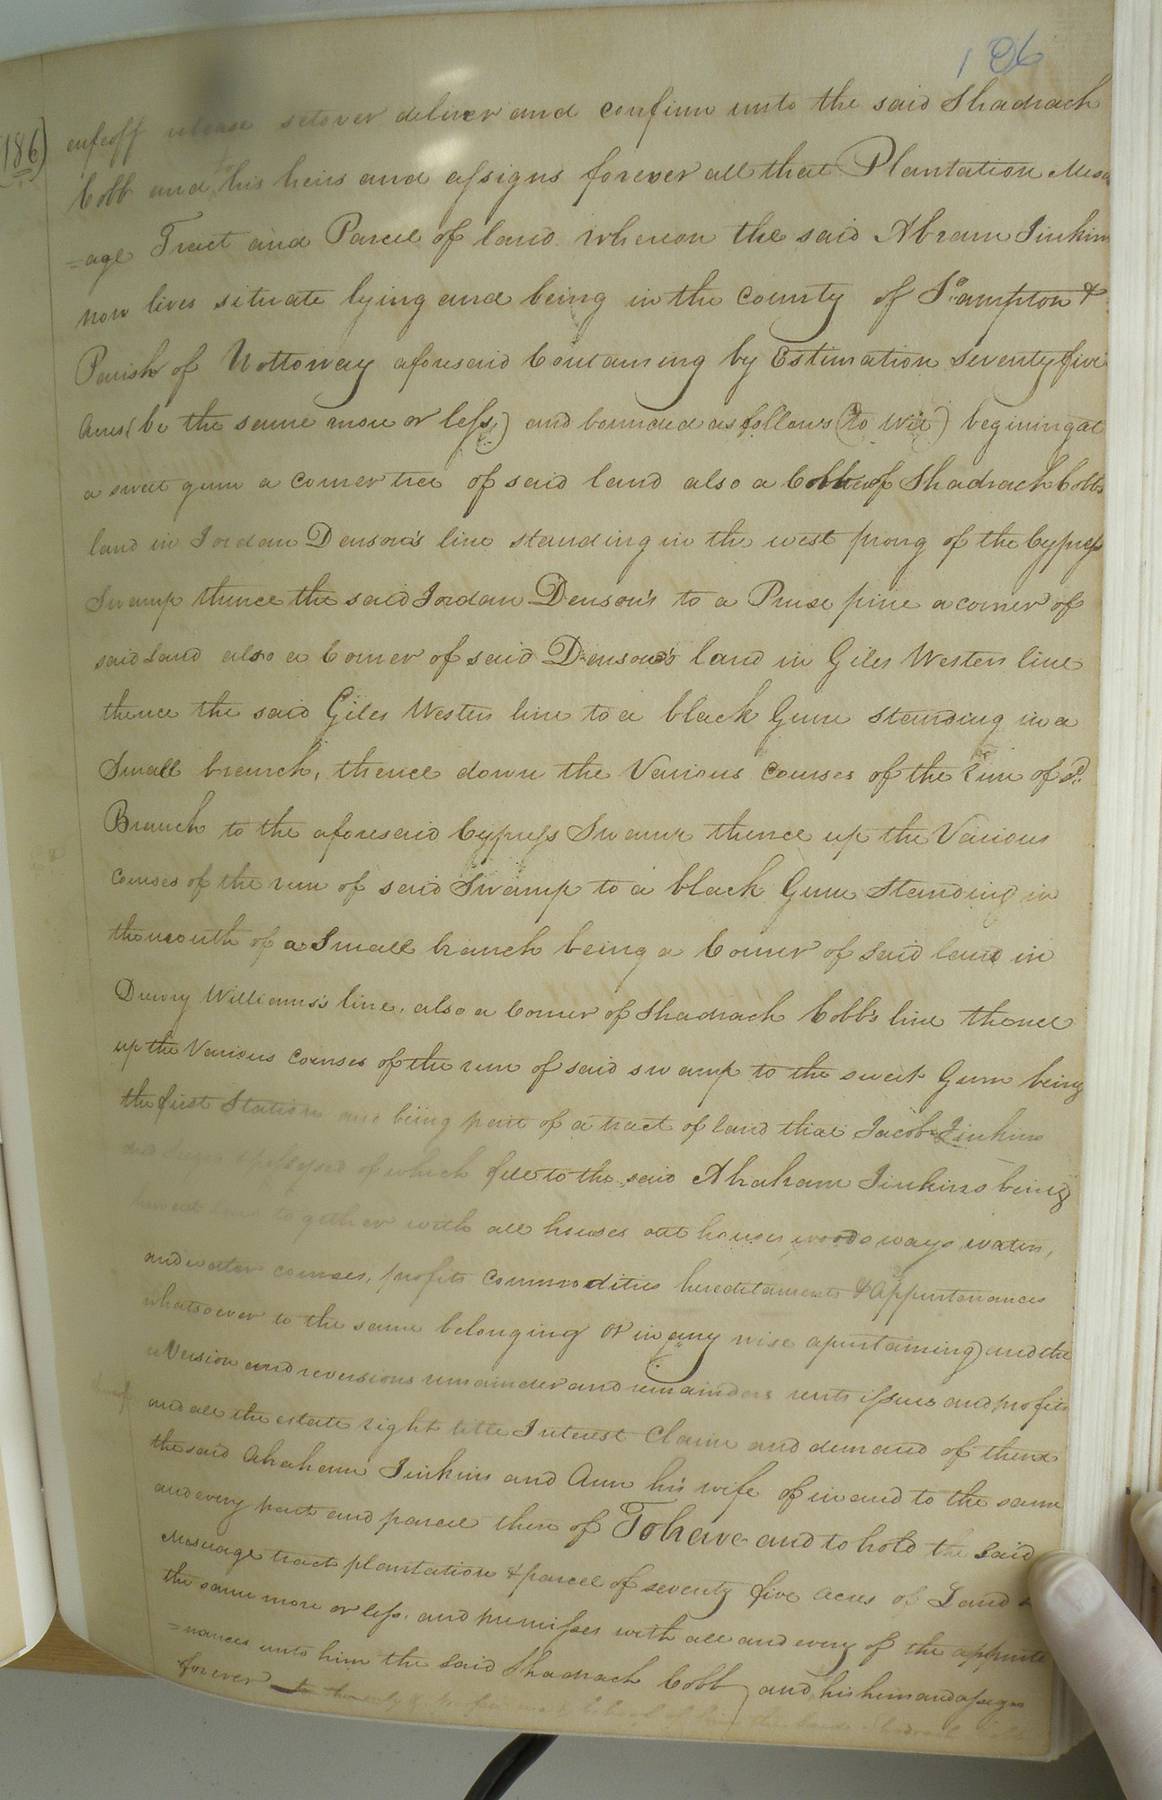 186
(186)
enfeoff release setover deliver and confirm unto the said Shadrach
Cobb and to his heirs and assigns forever all that Plantation Messu
=age Tract and Parcel of land whereon the said Abram Jinkins
now lives situate lying and being in the county of So.ampton &
Parish of Nottoway aforesaid Containing by Estimation seventy five
Acres (be the same more or less) and bounded as follows (to wit) begining at
a sweet gum a corner tree of said land also a of Shadrach Cobbs
land in Jordan Denson's line standing in the west prong of the Cypress
Swamp thence the said Jordan Denson's to a pine a corner of
said Land also a Corner of said Denson's land in Giles Westers line
thence the said Giles Westers line to a black Gum standing in a
Small branch, thence down the Various courses of the run of sd.
Branch to the aforesaid Cypress Swamp thence up the Various
courses of the run of said Swamp to a black Gum Standing in
the mouth of a Small branch being a Corner of said land in
Drewry Williams's line, also a Corner of Shadrach Cobb's line thence
up the Various courses of the run of said swamp to the sweet Gum being
the first Station and being part of a tract of land that Jacob Jinkins
possessed of which fell to the said Abraham Jinkins being
together with all houses out houses woods ways waters,
and water courses, profits commodities hereditaments & Appurtenances
whatsoever to the same belonging or in any wise apurtaining and the
reversion and reversions remainder and remainders rents issues and profits
and all the estate right title Interest Claim and demand of them
the said Abraham Jinkins and Ann his wife of in and to the same
and every part and parcel there of To have and to hold the said
Messuage tract plantation & parcel of seventy five acres of Land
the same more or less. and premisses with all and every of the appurte
=nances unto him the said Shadrach Cobb and his heirs and assigns
forever